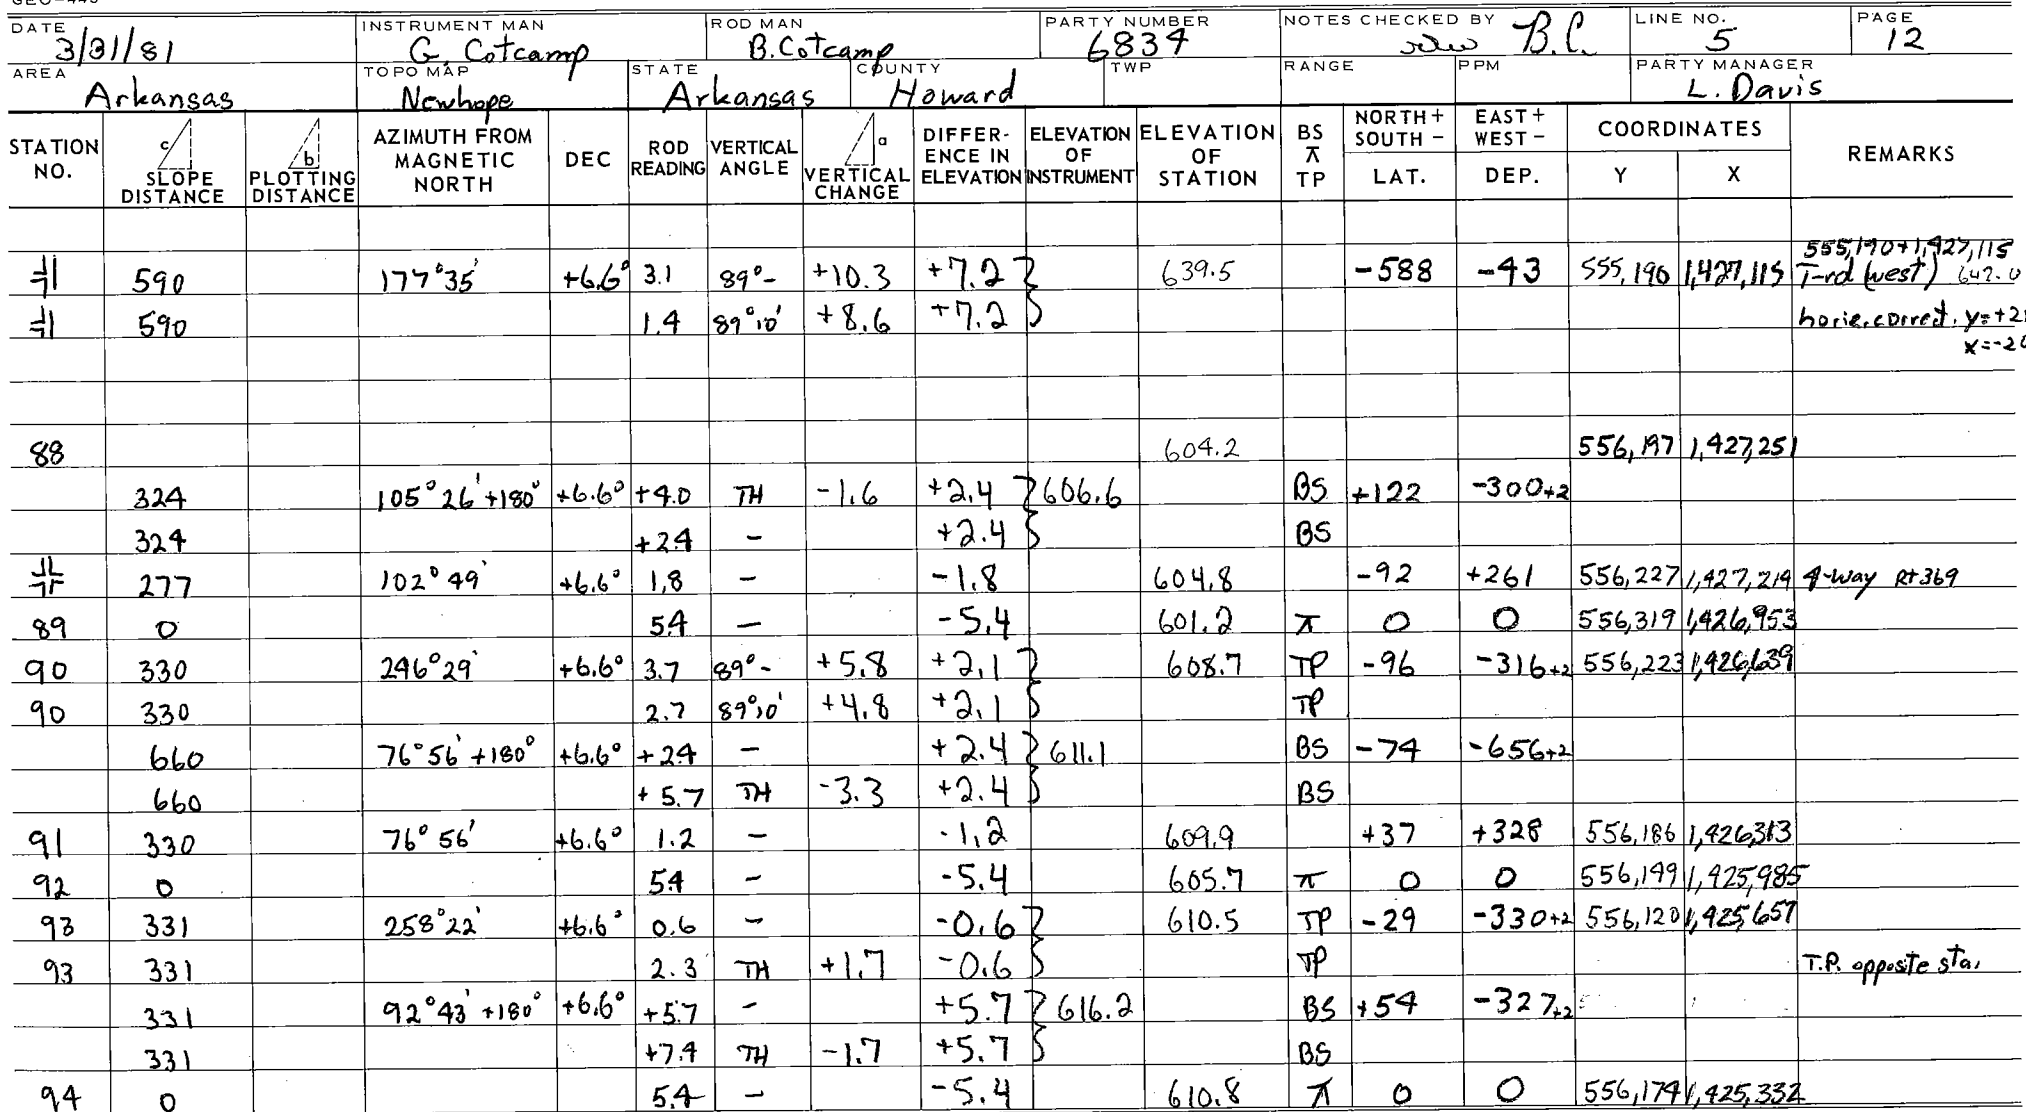 DATE 3/31/81 INSTRUMENT MAN G. Cotcamp ROD MAN B. Cotcamp PARTY NUMBER 6834 NOTES CHECKED BY B.C. LINE NO. 5 PAGE 12
AREA Arkansas TOPO MAP Newhope STATE Arkansas COUNTY Howard TWP RANGE PPM PARTY MANAGER L. Davis
STATION NO. c SLOPE DISTANCE b PLOTTING DISTANCE AZIMUTH FROM MAGNETIC NORTH DEC ROD READING VERTICAL ANGLE a VERTICAL CHANGE DIFFER-ENCE IN ELEVATION ELEVATION OF INSTRUMENT ELEVATION OF STATION BS ⊼ TP NORTH + SOUTH - LAT. EAST + WEST - DEP. COORDINATES Y X REMARKS
555,190+1,427,115
590 177°35' +6.6° 3.1 89°- +10.3 +7.2 639.5 -588 -43 555,190 1,427,115 T-rd (west) 642.0
590 1.4 89°10' +8.6 +7.2 horiz. correct. y=+2
x=-20
88 604.2 556,197 1,427,251
324 105°26'+180° +6.6° +4.0 TH -1.6 +2.4 606.6 BS +122 -300+2
324 +2.4 - +2.4 BS
277 102°49' +6.6° 1.8 - -1.8 604.8 -92 +261 556,227 1,427,214 4-way Rt 369
89 0 5.4 - -5.4 601.2 ⊼ 0 0 556,319 1,426,953
90 330 246°29' +6.6° 3.7 89°- +5.8 +2.1 608.7 TP -96 -316+2 556,223 1,426,639
90 330 2.7 89°10' +4.8 +2.1 TP
660 76°56'+180° +6.6° +2.4 - +2.4 611.1 BS -74 -656+2
660 +5.7 TH -3.3 +2.4 BS
91 330 76°56' +6.6° 1.2 - -1.2 609.9 +37 +328 556,186 1,426,313
92 0 5.4 - -5.4 605.7 ⊼ 0 0 556,149 1,425,985
93 331 258°22' +6.6° 0.6 - -0.6 610.5 TP -29 -330+2 556,120 1,425,657
93 331 2.3 TH +1.7 -0.6 TP T.P. opposite sta.
331 92°43'+180° +6.6° +5.7 - +5.7 616.2 BS +54 -327+2
331 +7.4 TH -1.7 +5.7 BS
94 0 5.4 - -5.4 610.8 ⊼ 0 0 556,174 1,425,332